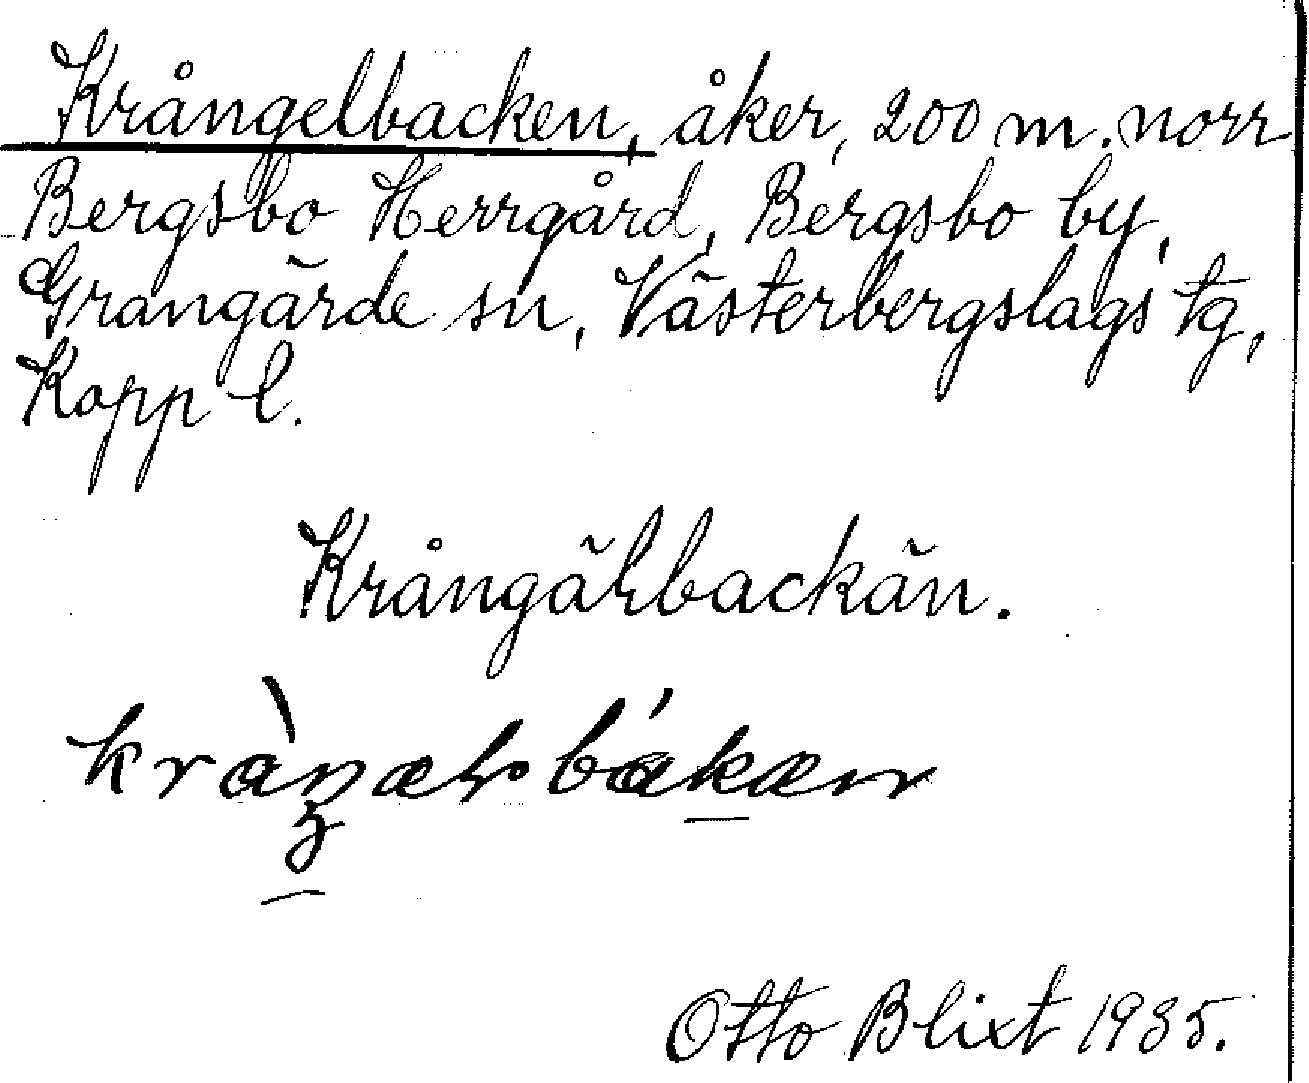 Krångelbacken, åker, 200 m. norr
Bergsbo Herrgård, Bergsbo by,
Grangärde sn, Västerbergslags tg,
Kopp l.
Krångäłbackän.
Otto Blixt 1935.